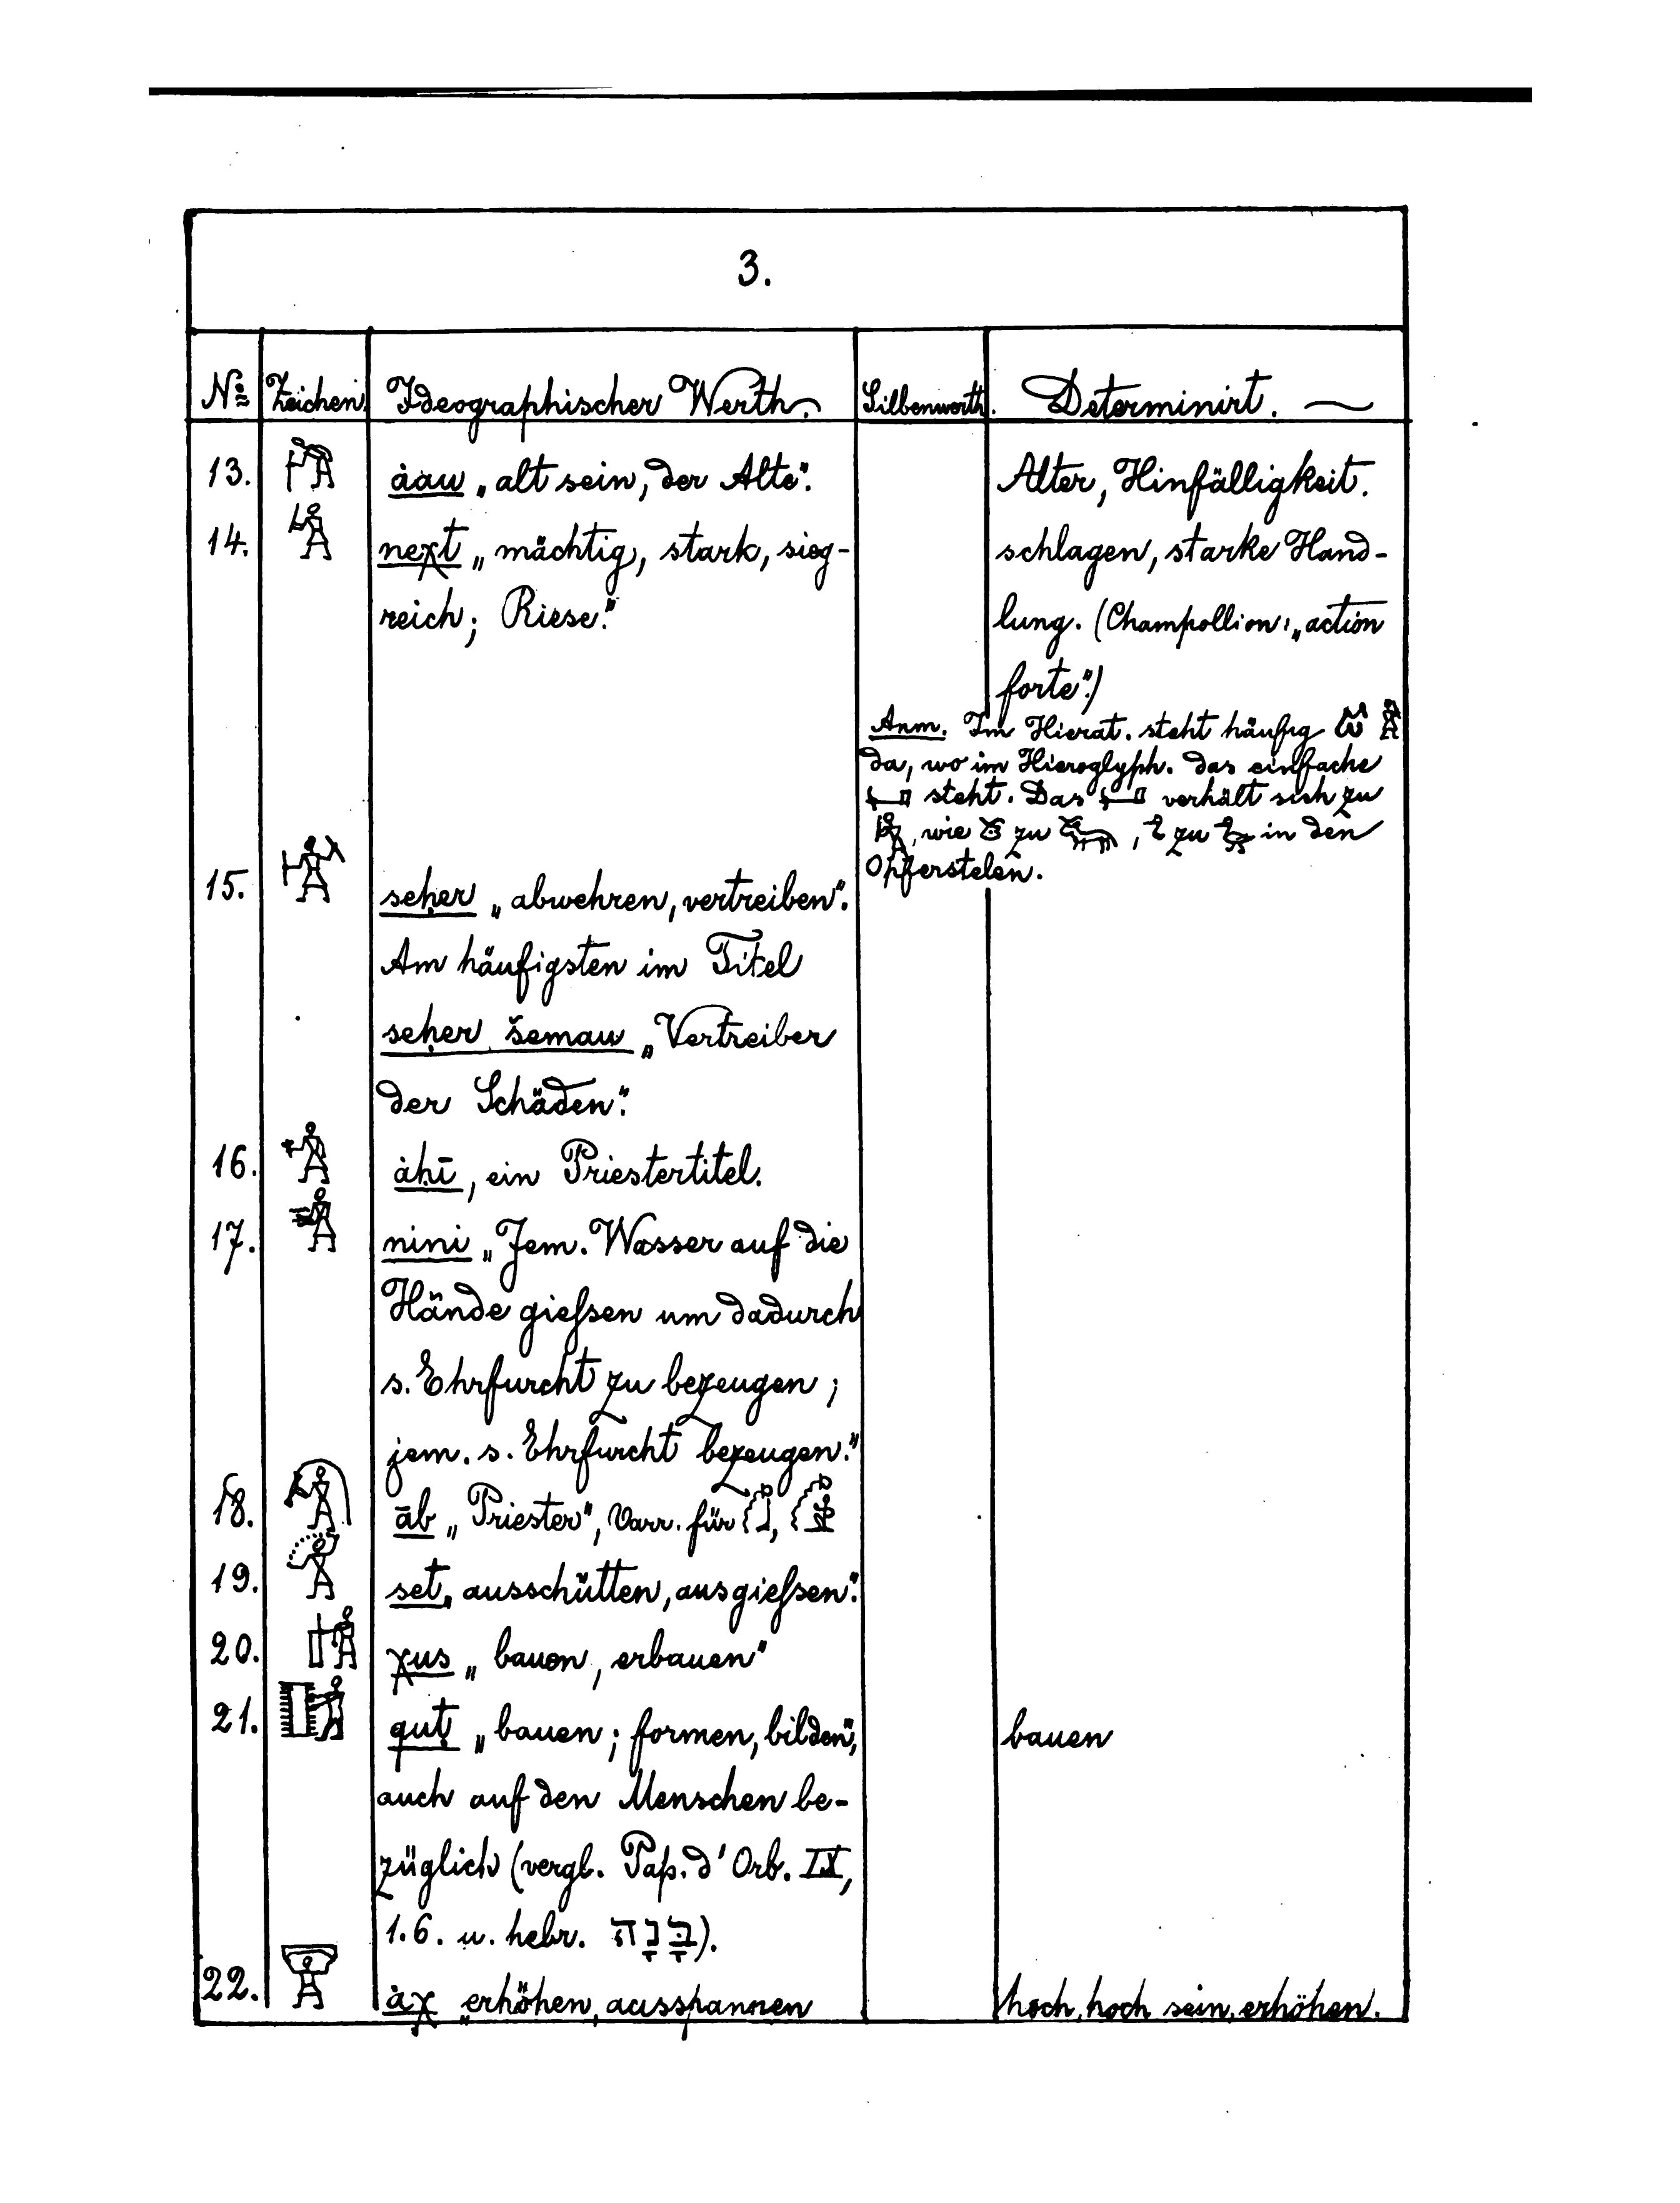 3.
№ Zeichen. Ideographischer Werth. Silbenwerth. Determinirt.
13. ȧau „alt sein, der Alte“. Alter, Hinfälligkeit.
14. neχt „mächtig, stark, sieg- schlagen, starke Hand-
reich; Riese.“ lung. (Champollion: „action
forte“.)
Anm. Im Hierat. steht häufig
da, wo im Hieroglyph. das einfache
steht. Das verhält sich zu
, wie zu , zu in den
Opferstelen.
15. seḥer „abwehren, vertreiben“.
Am häufigsten im Titel
seḥer šemau „Vertreiber
der Schäden“.
16. ȧḥī, ein Priestertitel.
17. nini „Jem. Wasser auf die
Hände gießen um dadurch
s. Ehrfurcht zu bezeugen;
jem. s. Ehrfurcht bezeugen.“
18. āb „Priester“, Varr. für ,
19. set „ausschütten, ausgießen“.
20. χus „bauen, erbauen“
21. quṭ „bauen; formen, bilden“, bauen
auch auf den Menschen be-
züglich (vergl. Pap. d'Orb. IX,
1.6. u. hebr. בָּנָה).
22. ȧχ „erhöhen, ausspannen hoch, hoch sein, erhöhen.